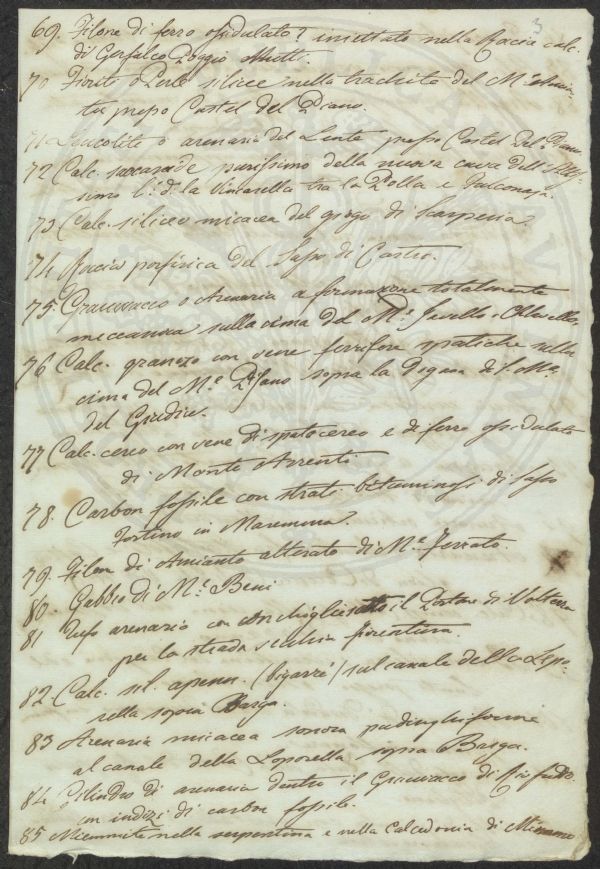 3
69. Filone di ferro ossidulato iniettato nella Roccia calc.
di Gerfalco Poggio Mutti.
70 Fiorite o Perle silicee nella trachite del M.e Amia-
ta presso Castel del Piano.
71 o arenaria del Lente presso Castel del Piano
72 Calc. saccaroide purissimo della nuova cava dell'Altis-
simo l.d. la Vincarella tra la Polla e Falcovaja.
73 Calc. siliceo micacea del giogo di Scarperia.
74 Roccia porfirica del Sasso di Castro.
75. Grauwacco o Arenaria a formazione totalmente
meccanica sulla cima del M.e
76 Calc. granoso con vene ferrifere spatiche sulla
cima del M.e Pisano sopra la di S. Ma.
del Giudice.
77 Calc. cereo con vene di spato cereo e di ferro ossidulato
di Monte Arrenti
78. Carbon fossile con strati bituminosi di Sasso
Fortino in Maremma.
79. Filon di Amianto alterato di M.e Ferrato.
80. Gabbro di M.e Beni
81 Tufo arenario con conchiglie sotto il Portone di Volterra
per la strada fiorentina.
82 Calc. sil. apenn. (bigarré) sul canale della Lopo-
rella sopra Barga.
83 Arenaria micacea sonora pudinghiforme
al canale della Loporella sopra Barga.
84 Cilindro di arenaria dentro il Grauwacco di
con indizi di carbon fossile.
85 Miemmite nella serpentina e nella Calcedonia di Miemmo